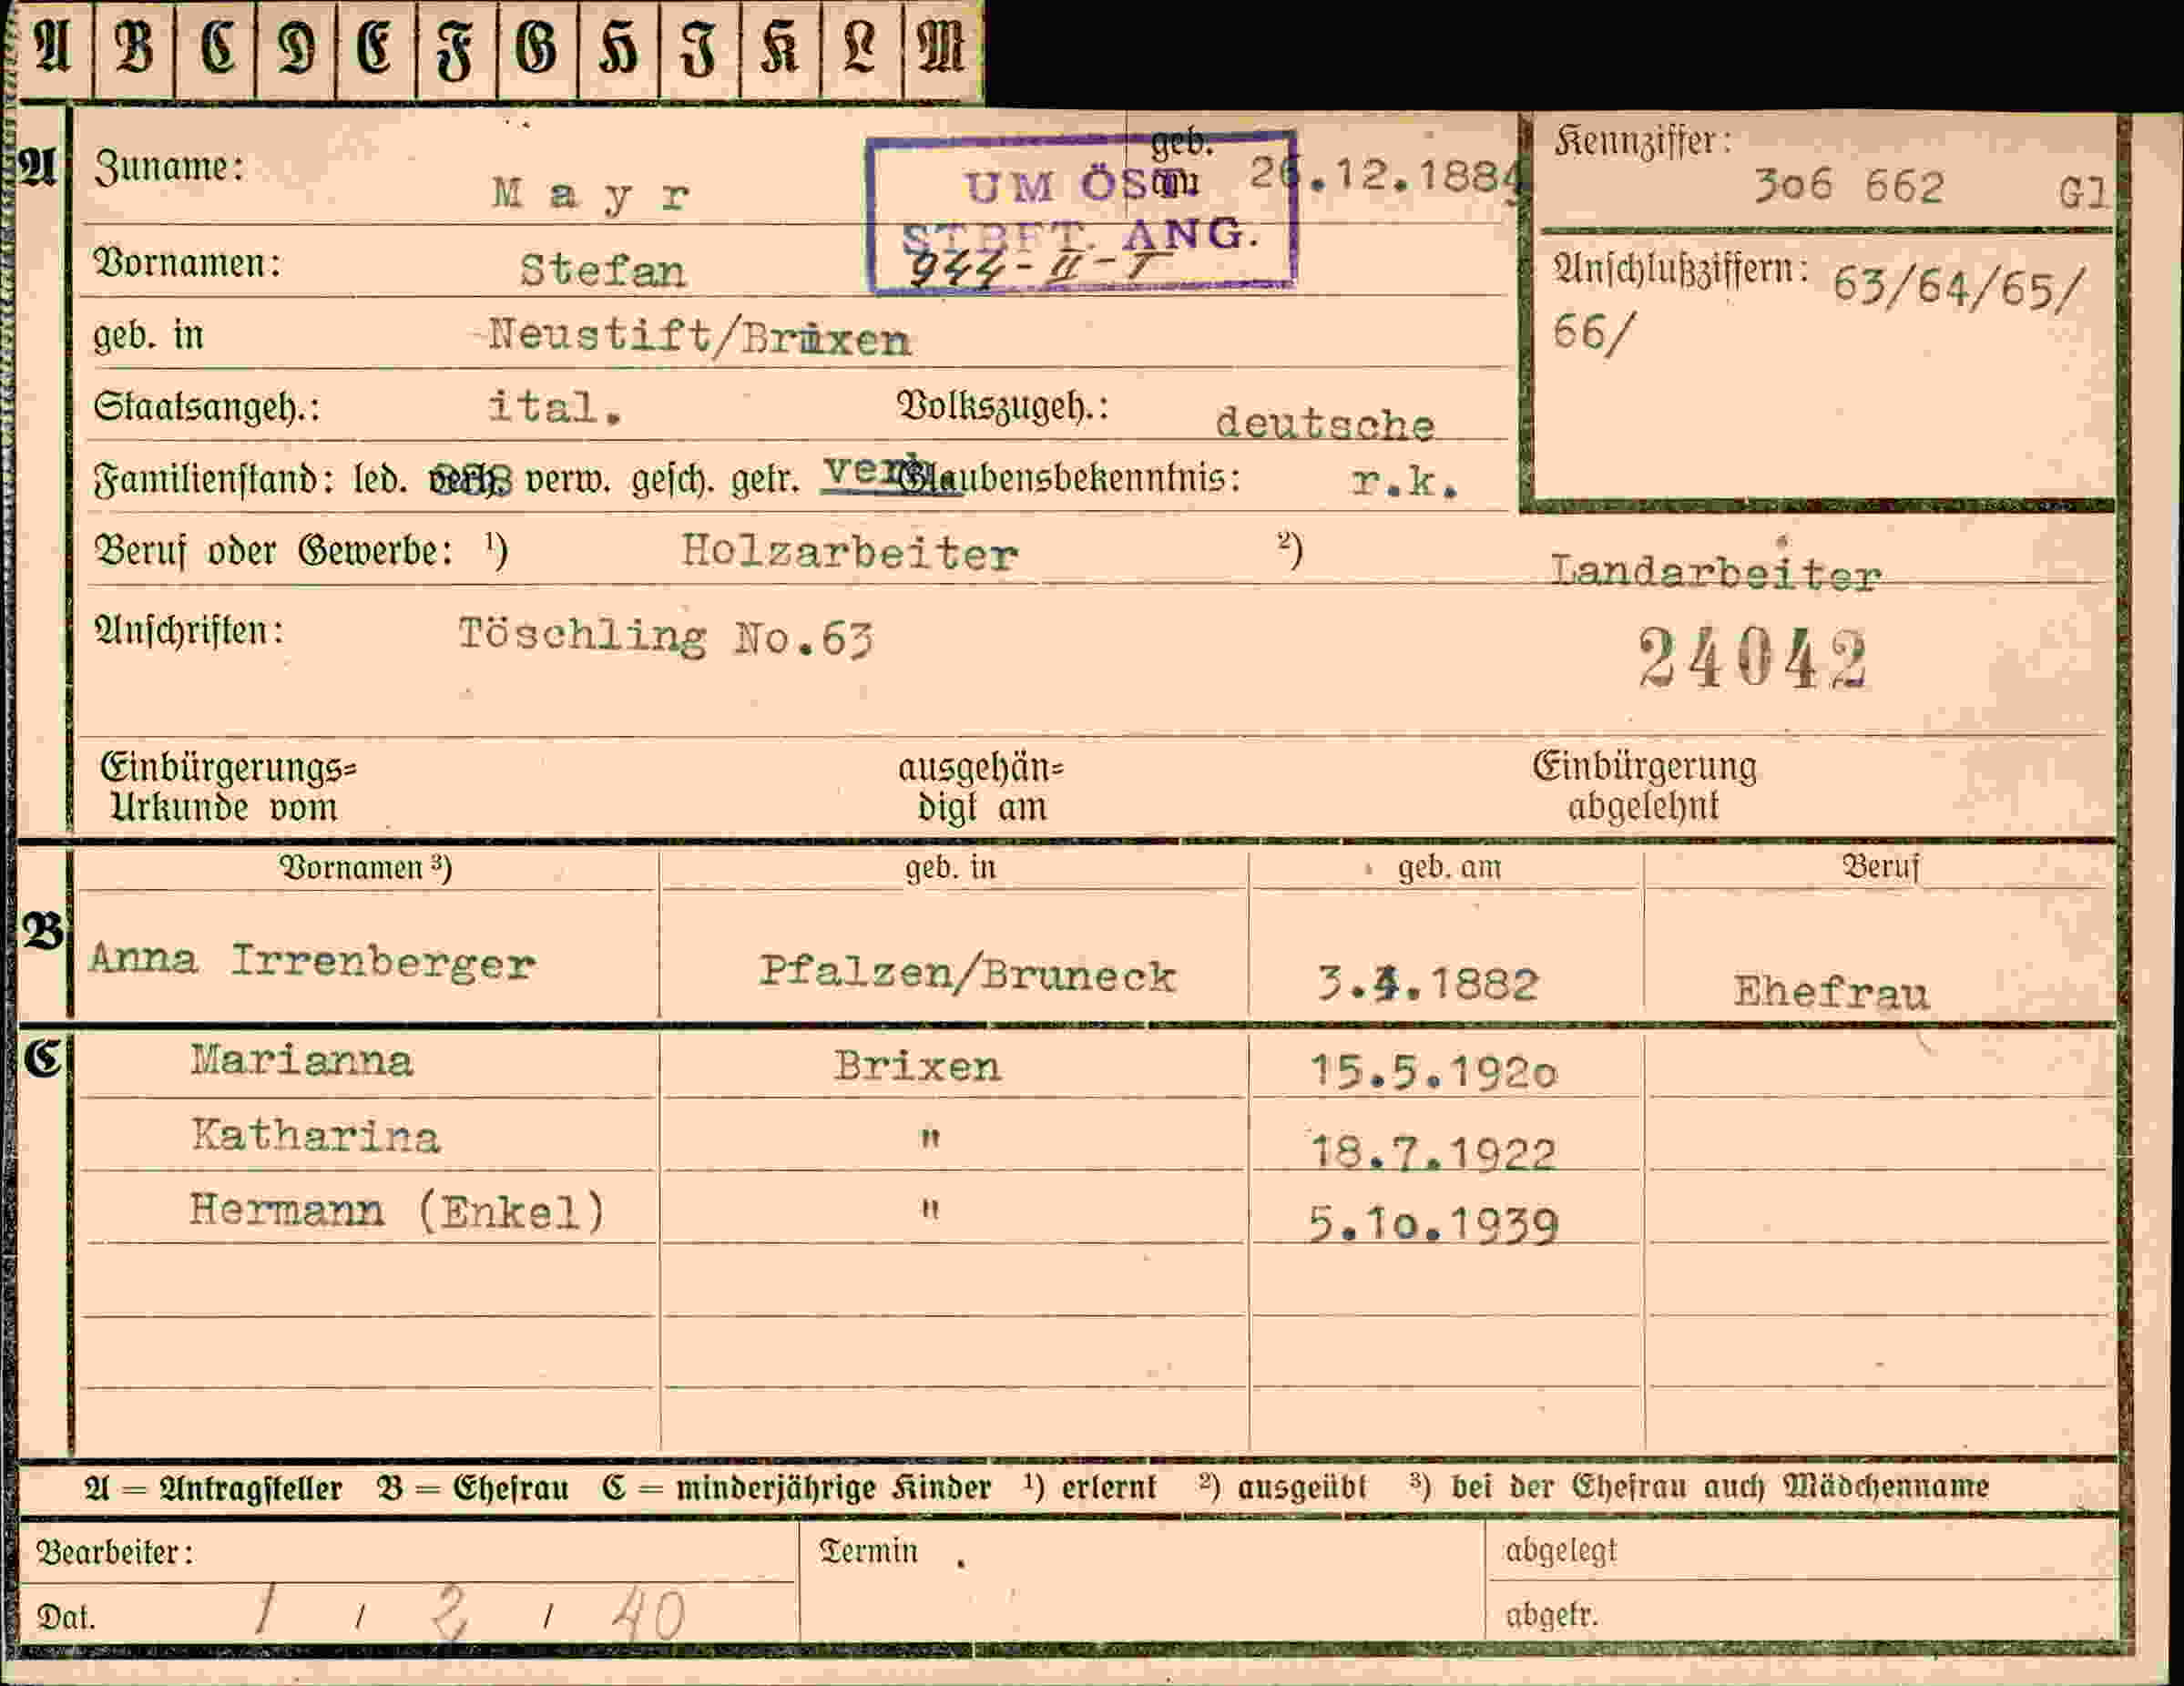 A B C D E F G H I K L M
A Zuname: M a y r geb. am 26.12.1884
UM ÖST.
STBFT. ANG.
944-II-T
Kennziffer: 306 662 Gl
Vornamen: Stefan
Anschlußziffern: 63/64/65/
66/
geb. in Neustift/Brixen
Staatsangeh.: ital. Volkszugeh.: deutsche
Familienstand: led. verw. gesch. getr. verh Glaubensbekenntnis: r.k.
Beruf oder Gewerbe: ¹) Holzarbeiter ²) Landarbeiter
Anschriften: Töschling No.63 24042
Einbürgerungs= ausgehän= Einbürgerung
Urkunde vom digt am abgelehnt
Vornamen ³) geb. in geb. am Beruf
B Anna Irrenberger Pfalzen/Bruneck 3.3.1882 Ehefrau
C Marianna Brixen 15.5.1920
Katharina " 18.7.1922
Hermann (Enkel) " 5.10.1939
A = Antragsteller B = Ehefrau C = minderjährige Kinder ¹) erlernt ²) ausgeübt ³) bei der Ehefrau auch Mädchenname
Bearbeiter: Termin abgelegt
Dat. 1 / 2 / 40 abgetr.